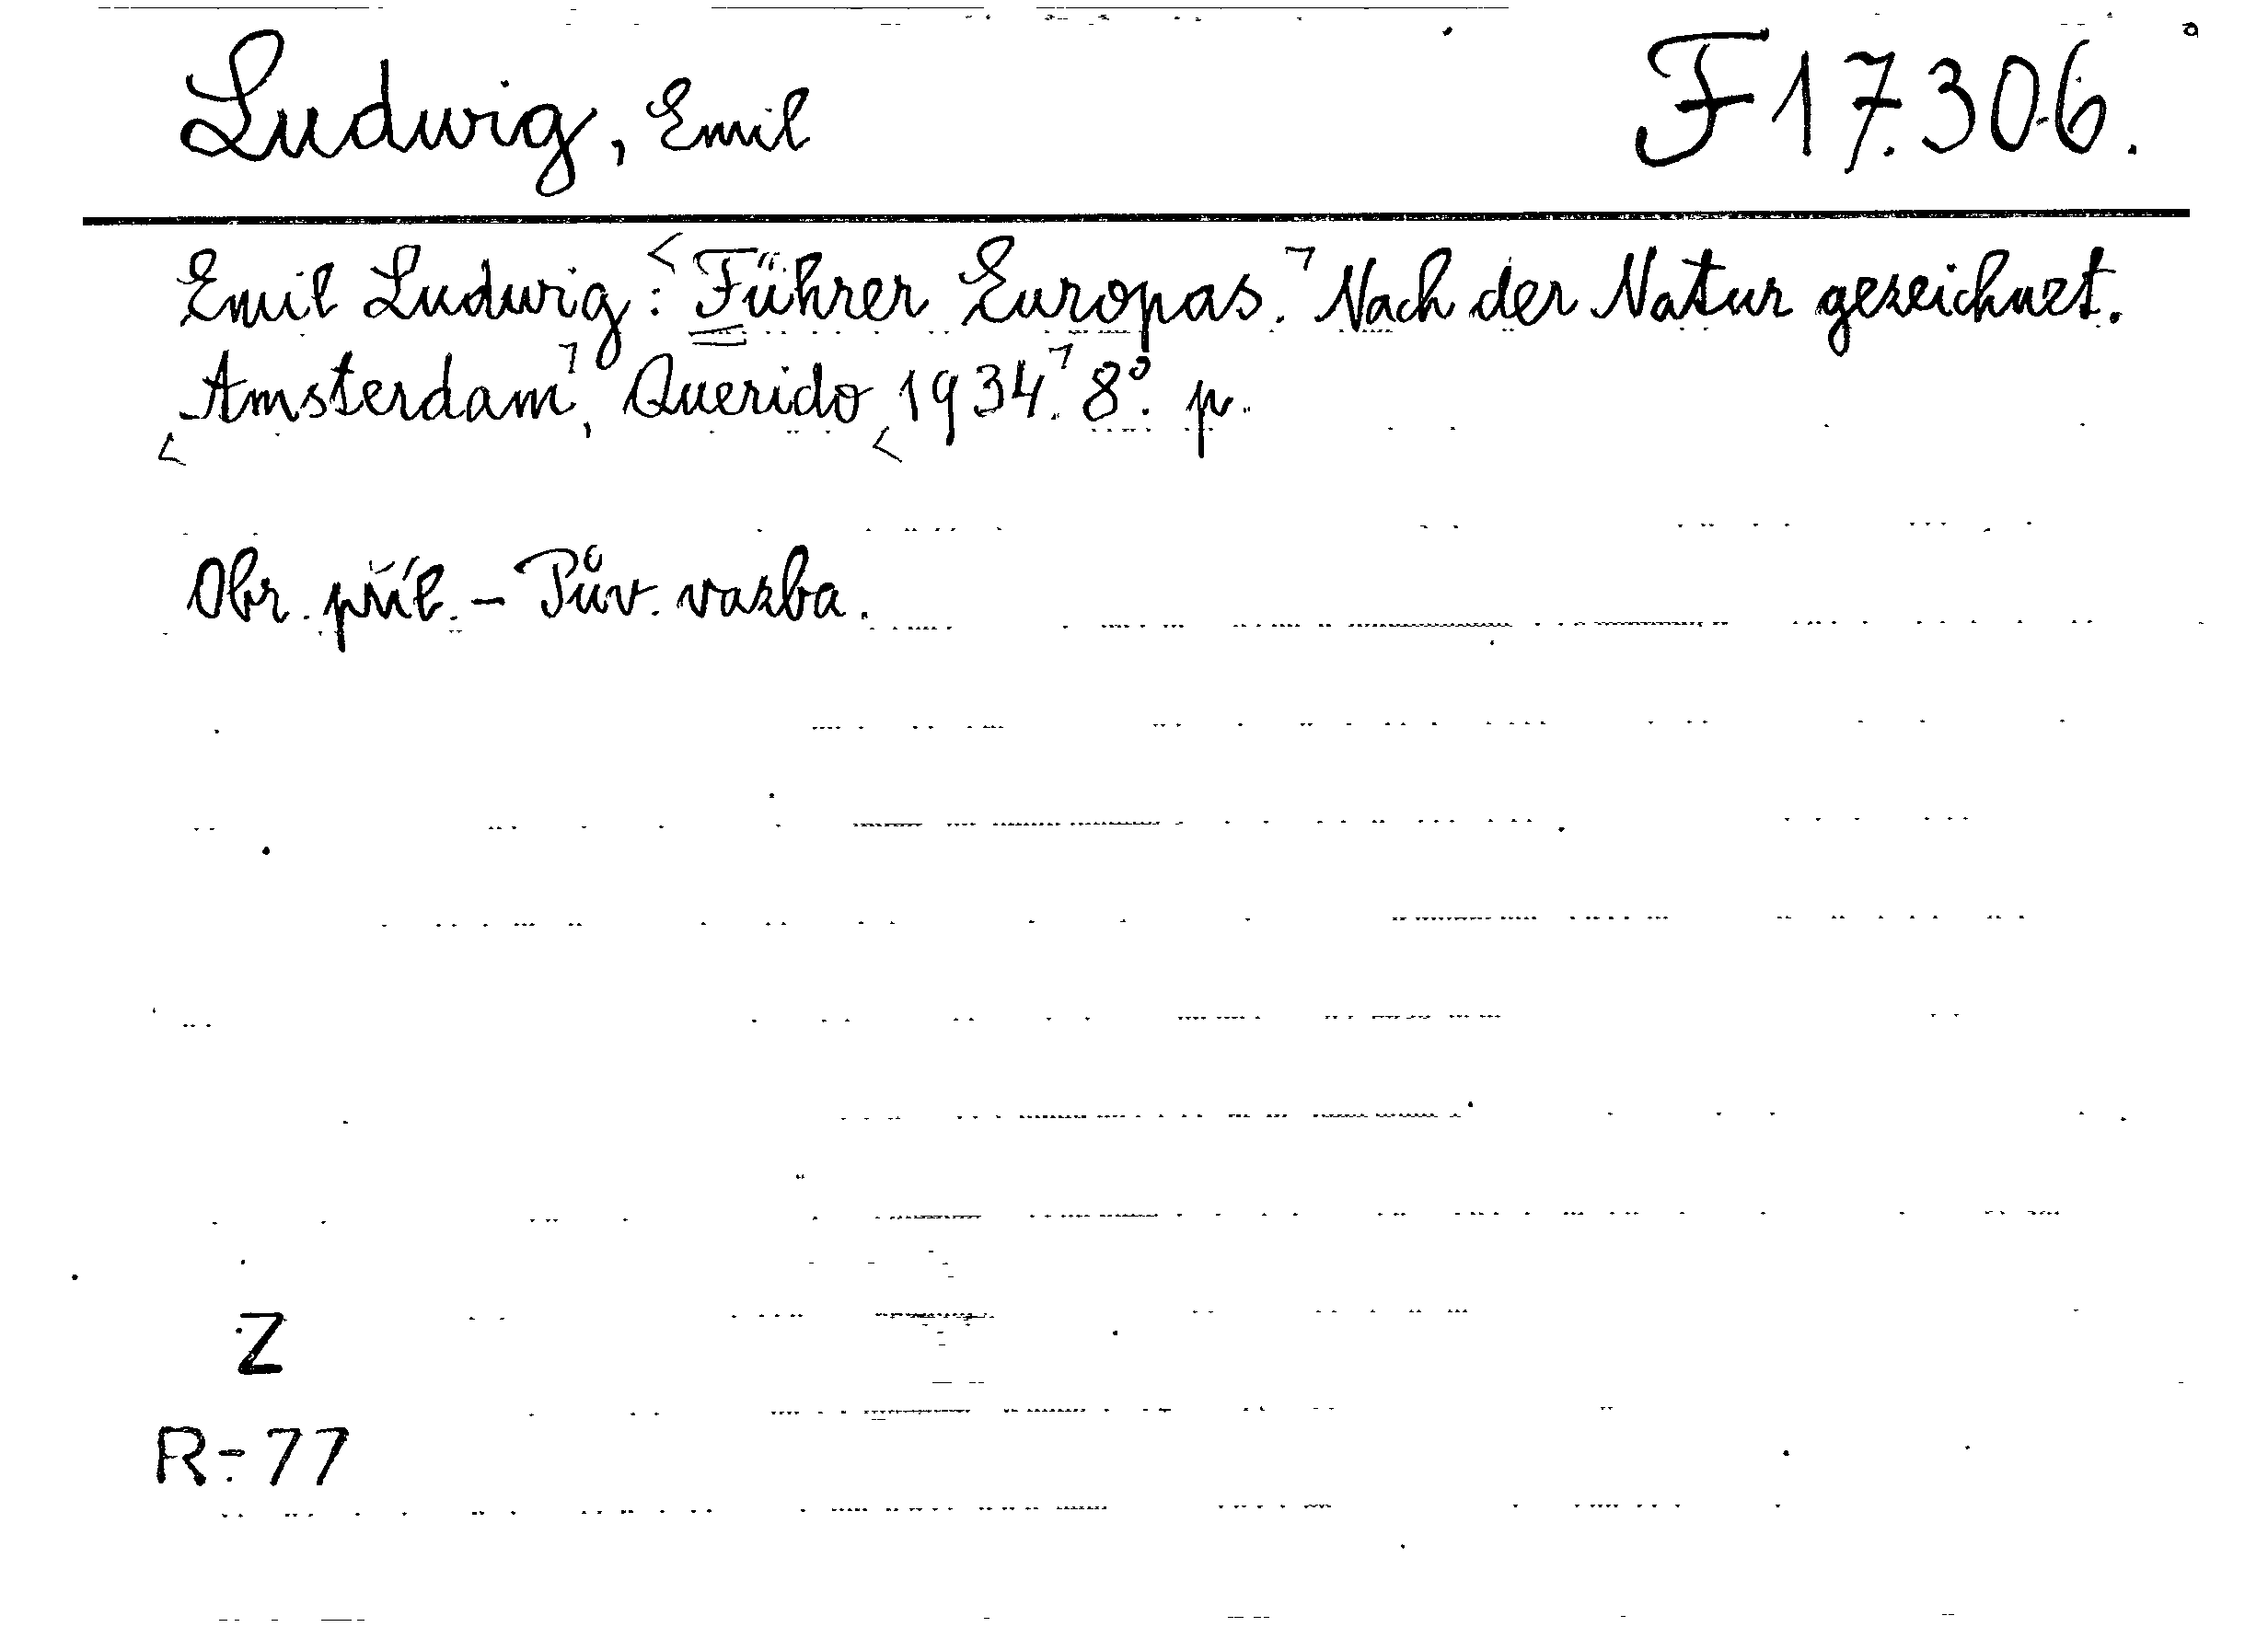 Ludwig, Emil F 17.306.
Emil Ludwig: Führer Europas. Nach der Natur gezeichnet.
Amsterdam, Querido 1934. 8°. p.
Obr. příl. - Pův. vazba.
Z
R-77